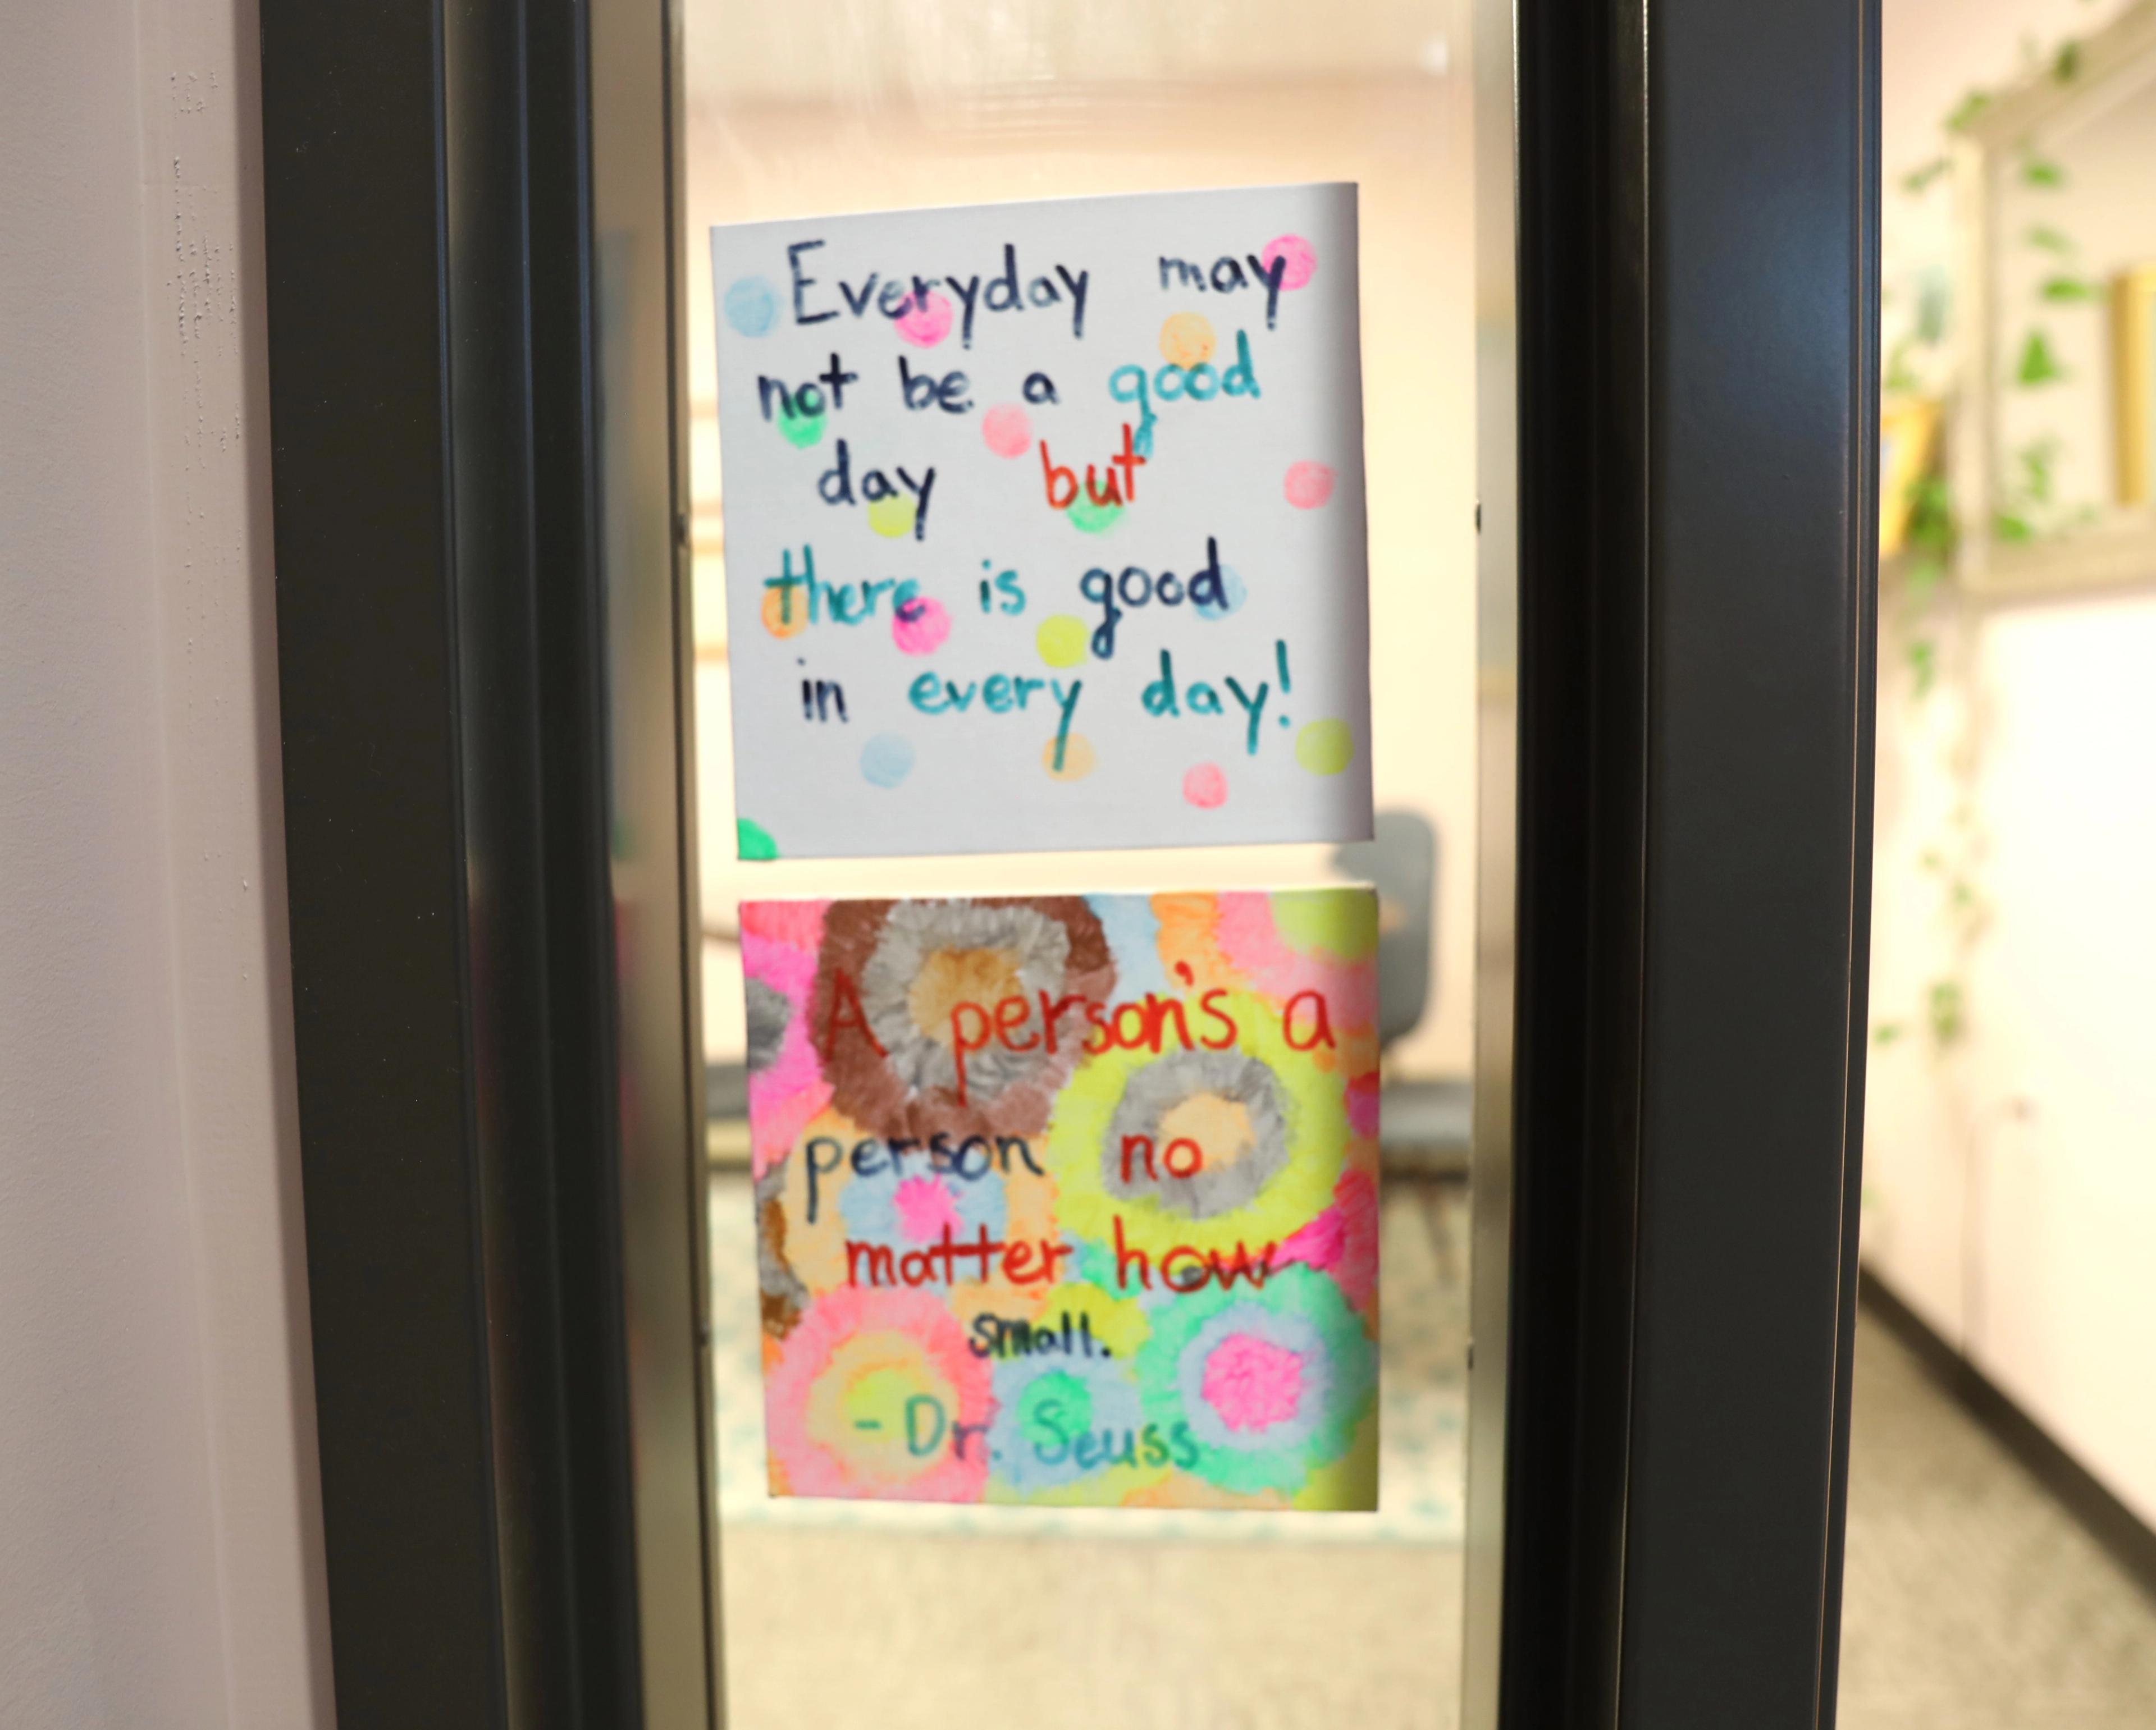 Everyday may
not be a good
day but
there is good
in every day!
A person's a
person no
matter how
small.
- Dr. Seuss